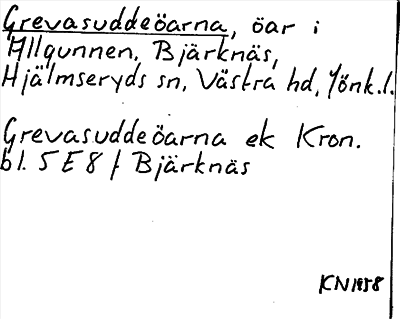 Grevasuddeöarna, öar i
Allgunnen, Bjärknäs,
Hjälmseryds sn, Västra hd, Jönk. l.
Grevasuddeöarna ek Kron.
bl. 5 E 8 f Bjärknäs
KN 1958